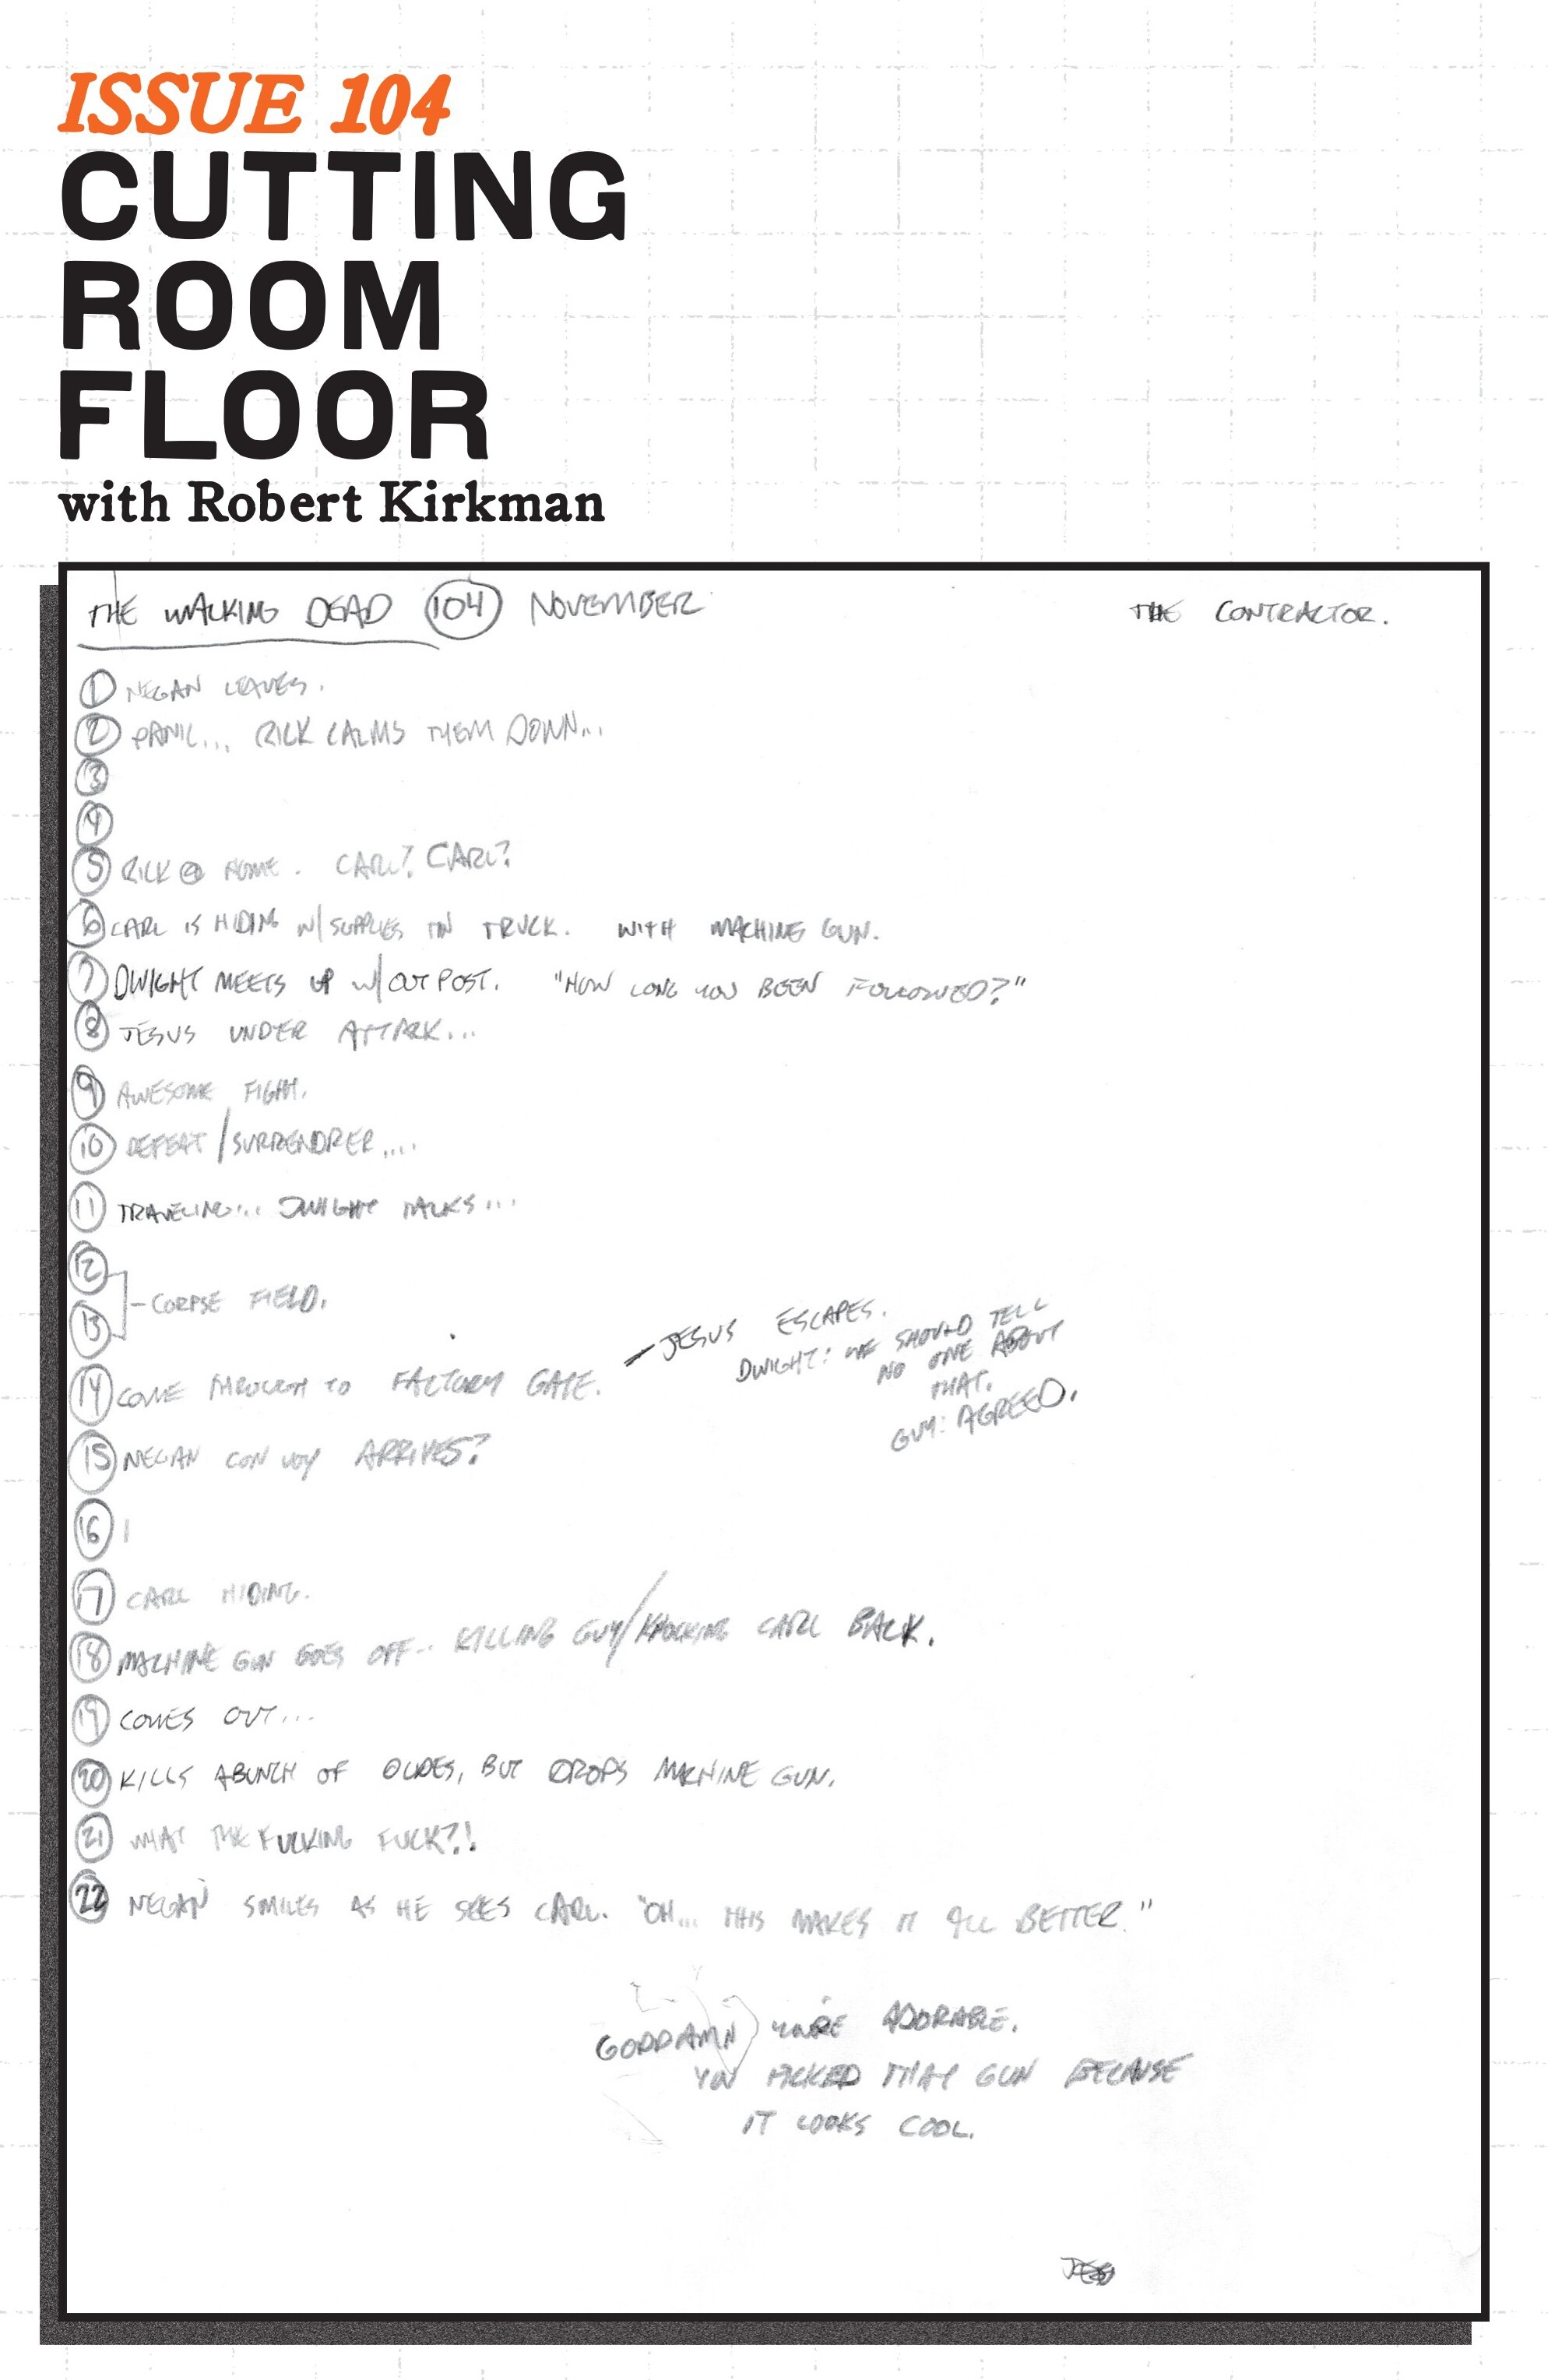 ISSUE 104
CUTTING
ROOM
FLOOR
with Robert Kirkman
THE WALKING DEAD 104 NOVEMBER
THE CONTRACTOR.
1 NEGAN LEAVES.
2 PANIC... RICK CALMS THEM DOWN...
3
4
5 RICK @ HOME. CARL? CARL?
6 CARL IS HIDING W/SUPPLIES IN TRUCK. WITH MACHINE GUN.
7 DWIGHT MEETS UP W/ OUTPOST. "HOW LONG YOU BEEN FOLLOWED?"
8 JESUS UNDER ATTACK...
9 AWESOME FIGHT.
10 DEFEAT/SURRENDRER....
11 TRAVELING... DWIGHT TALKS...
12
13
- CORPSE FIELD.
14 COME THROUGH TO FACTORY GATE.
- JESUS ESCAPES.
DWIGHT: WE SHOULD TELL
NO ONE ABOUT
THAT.
GUY: AGREED.
15 NEGAN CONVOY ARRIVES?
16
17 CARL HIDING.
18 MACHINE GUN GOES OFF-- KILLING GUY/KNOCKING CARL BACK.
19 COMES OUT...
20 KILLS A BUNCH OF DUDES, BUT DROPS MACHINE GUN.
21 WHAT THE FUCKING FUCK?!
22 NEGAN SMILES AS HE SEES CARL. "OH... THIS MAKES IT ALL BETTER."
GODDAMN YOU'RE ADORABLE.
YOU PICKED THAT GUN BECAUSE
IT LOOKS COOL.